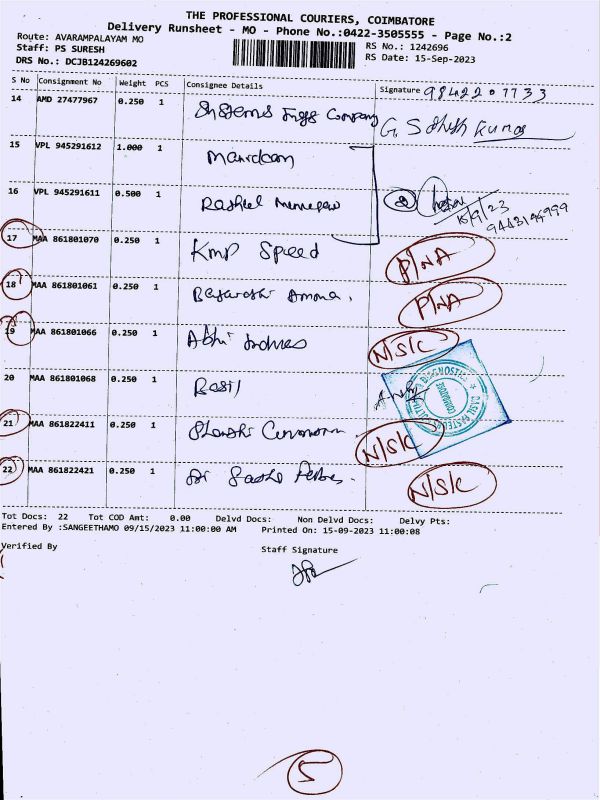 THE PROFESSIONAL COURIERS, COIMBATORE
Delivery Runsheet - MO - Phone No.:0422-3505555 - Page No.:2
Route: AVARAMPALAYAM MO
RS No.: 1242696
Staff: PS SURESH
RS Date: 15-Sep-2023
DRS No.: DCJB124269602
S No Consignment No Weight PCS Consignee Details Signature 9842207733
14 AMD 27477967 0.250 1 Systems Ings Company G. Sathish Kumar
15 VPL 945291612 1.000 1
16 VPL 945291611 0.500 1 Rasheel
15/9/23
9443144999
17 MAA 861801070 0.250 1 KMP Speed P/NA
18 MAA 861801061 0.250 1 Amma. P/NA
19 MAA 861801066 0.250 1 Abhi N/S/C
20 MAA 861801068 0.250 1 Basil
21 MAA 861822411 0.250 1 N/S/C
22 MAA 861822421 0.250 1 N/S/C
Tot Docs: 22 Tot COD Amt: 0.00 Delvd Docs: Non Delvd Docs: Delvy Pts:
Entered By :SANGEETHAMO 09/15/2023 11:00:00 AM Printed On: 15-09-2023 11:00:08
Verified By Staff Signature
5